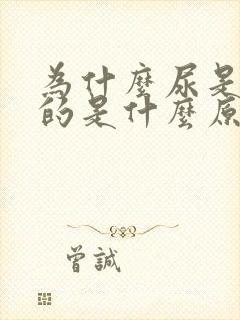 為什麼尿是
的是什麼原
曾誠